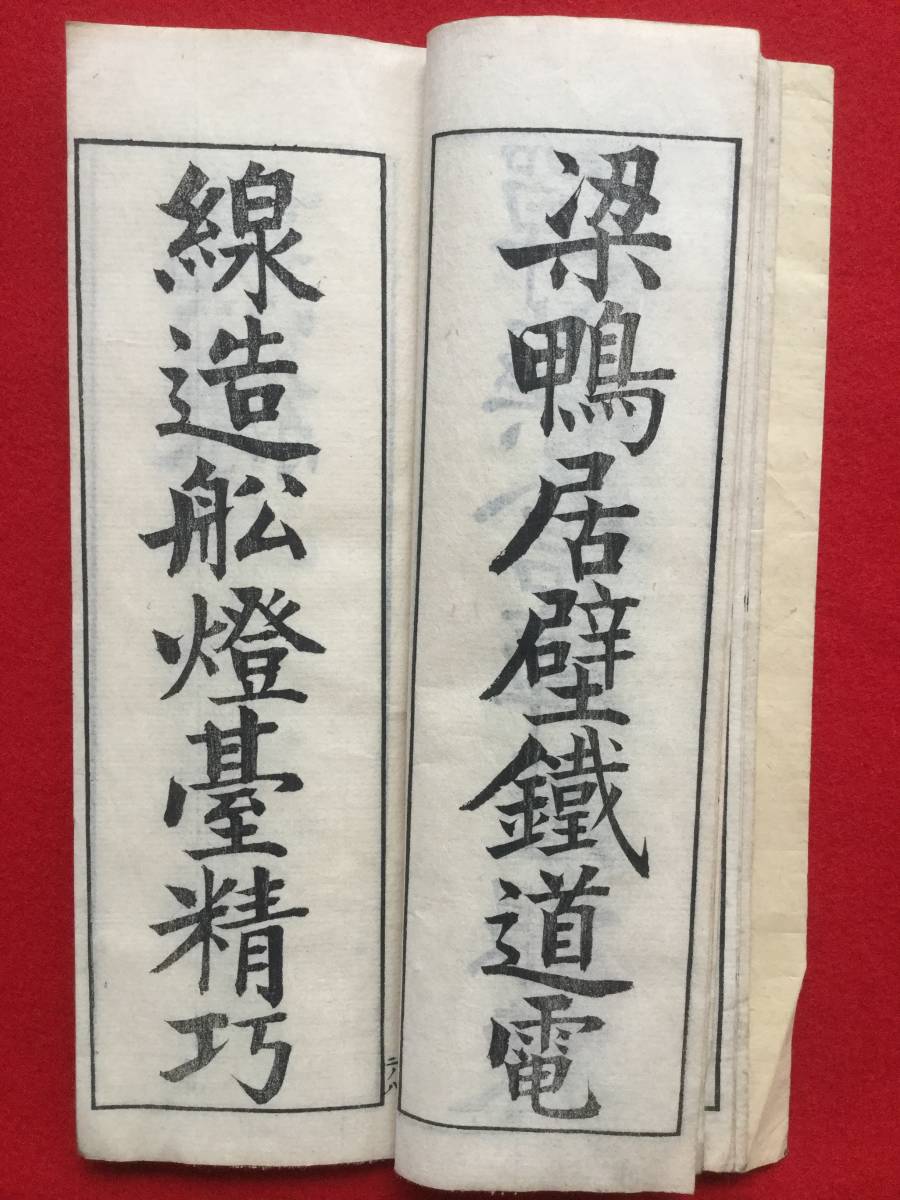 梁鴨居壁鐵道電
線造舩燈臺精巧
二ノハ